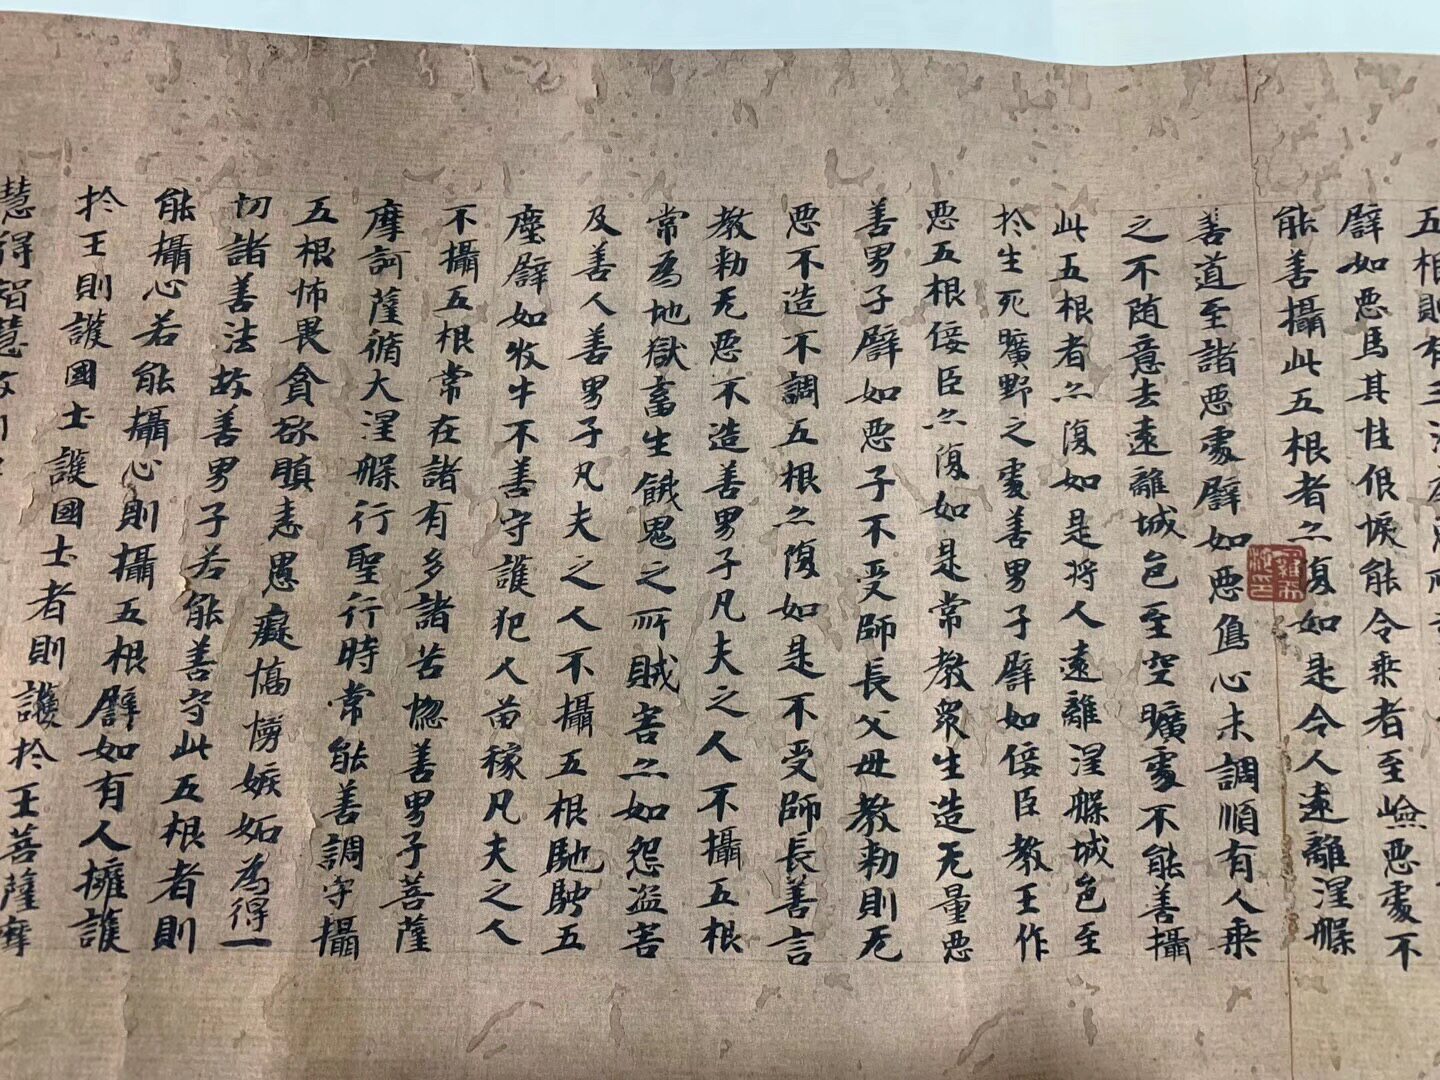 五根則有三
譬如惡馬其性佷悷能令乘者至嶮惡處不
能善攝此五根者亦復如是令人遠離涅槃
善道至諸惡處譬如惡心未調順有人乘
之不随意去遠離城邑至空曠處不能善攝
此五根者亦復如是将人遠離涅槃城邑至
扵生死曠野之處善男子譬如佞臣教王作
惡五根佞臣亦復如是常教眾生造无量惡
善男子譬如惡子不受師長父母教勑則无
惡不造不調五根亦復如是不受師長善言
教勑无惡不造善男子凡夫之人不攝五根
常為地獄畜生餓鬼之所賊害亦如怨盗害
及善人善男子凡夫之人不攝五根馳騁五
塵譬如牧牛不善守護犯人苗稼凡夫之人
不攝五根常在諸有多諸苦惱善男子菩薩
摩訶薩脩大涅槃行聖行時常能善調守攝
五根怖畏貪欲瞋恚愚癡憍慢嫉妬為得一
切諸善法故善男子若能善守此五根者則
能攝心若能攝心則攝五根譬如有人擁護
扵王則護國土護國土者則護扵王菩薩摩
慧得智慧故則